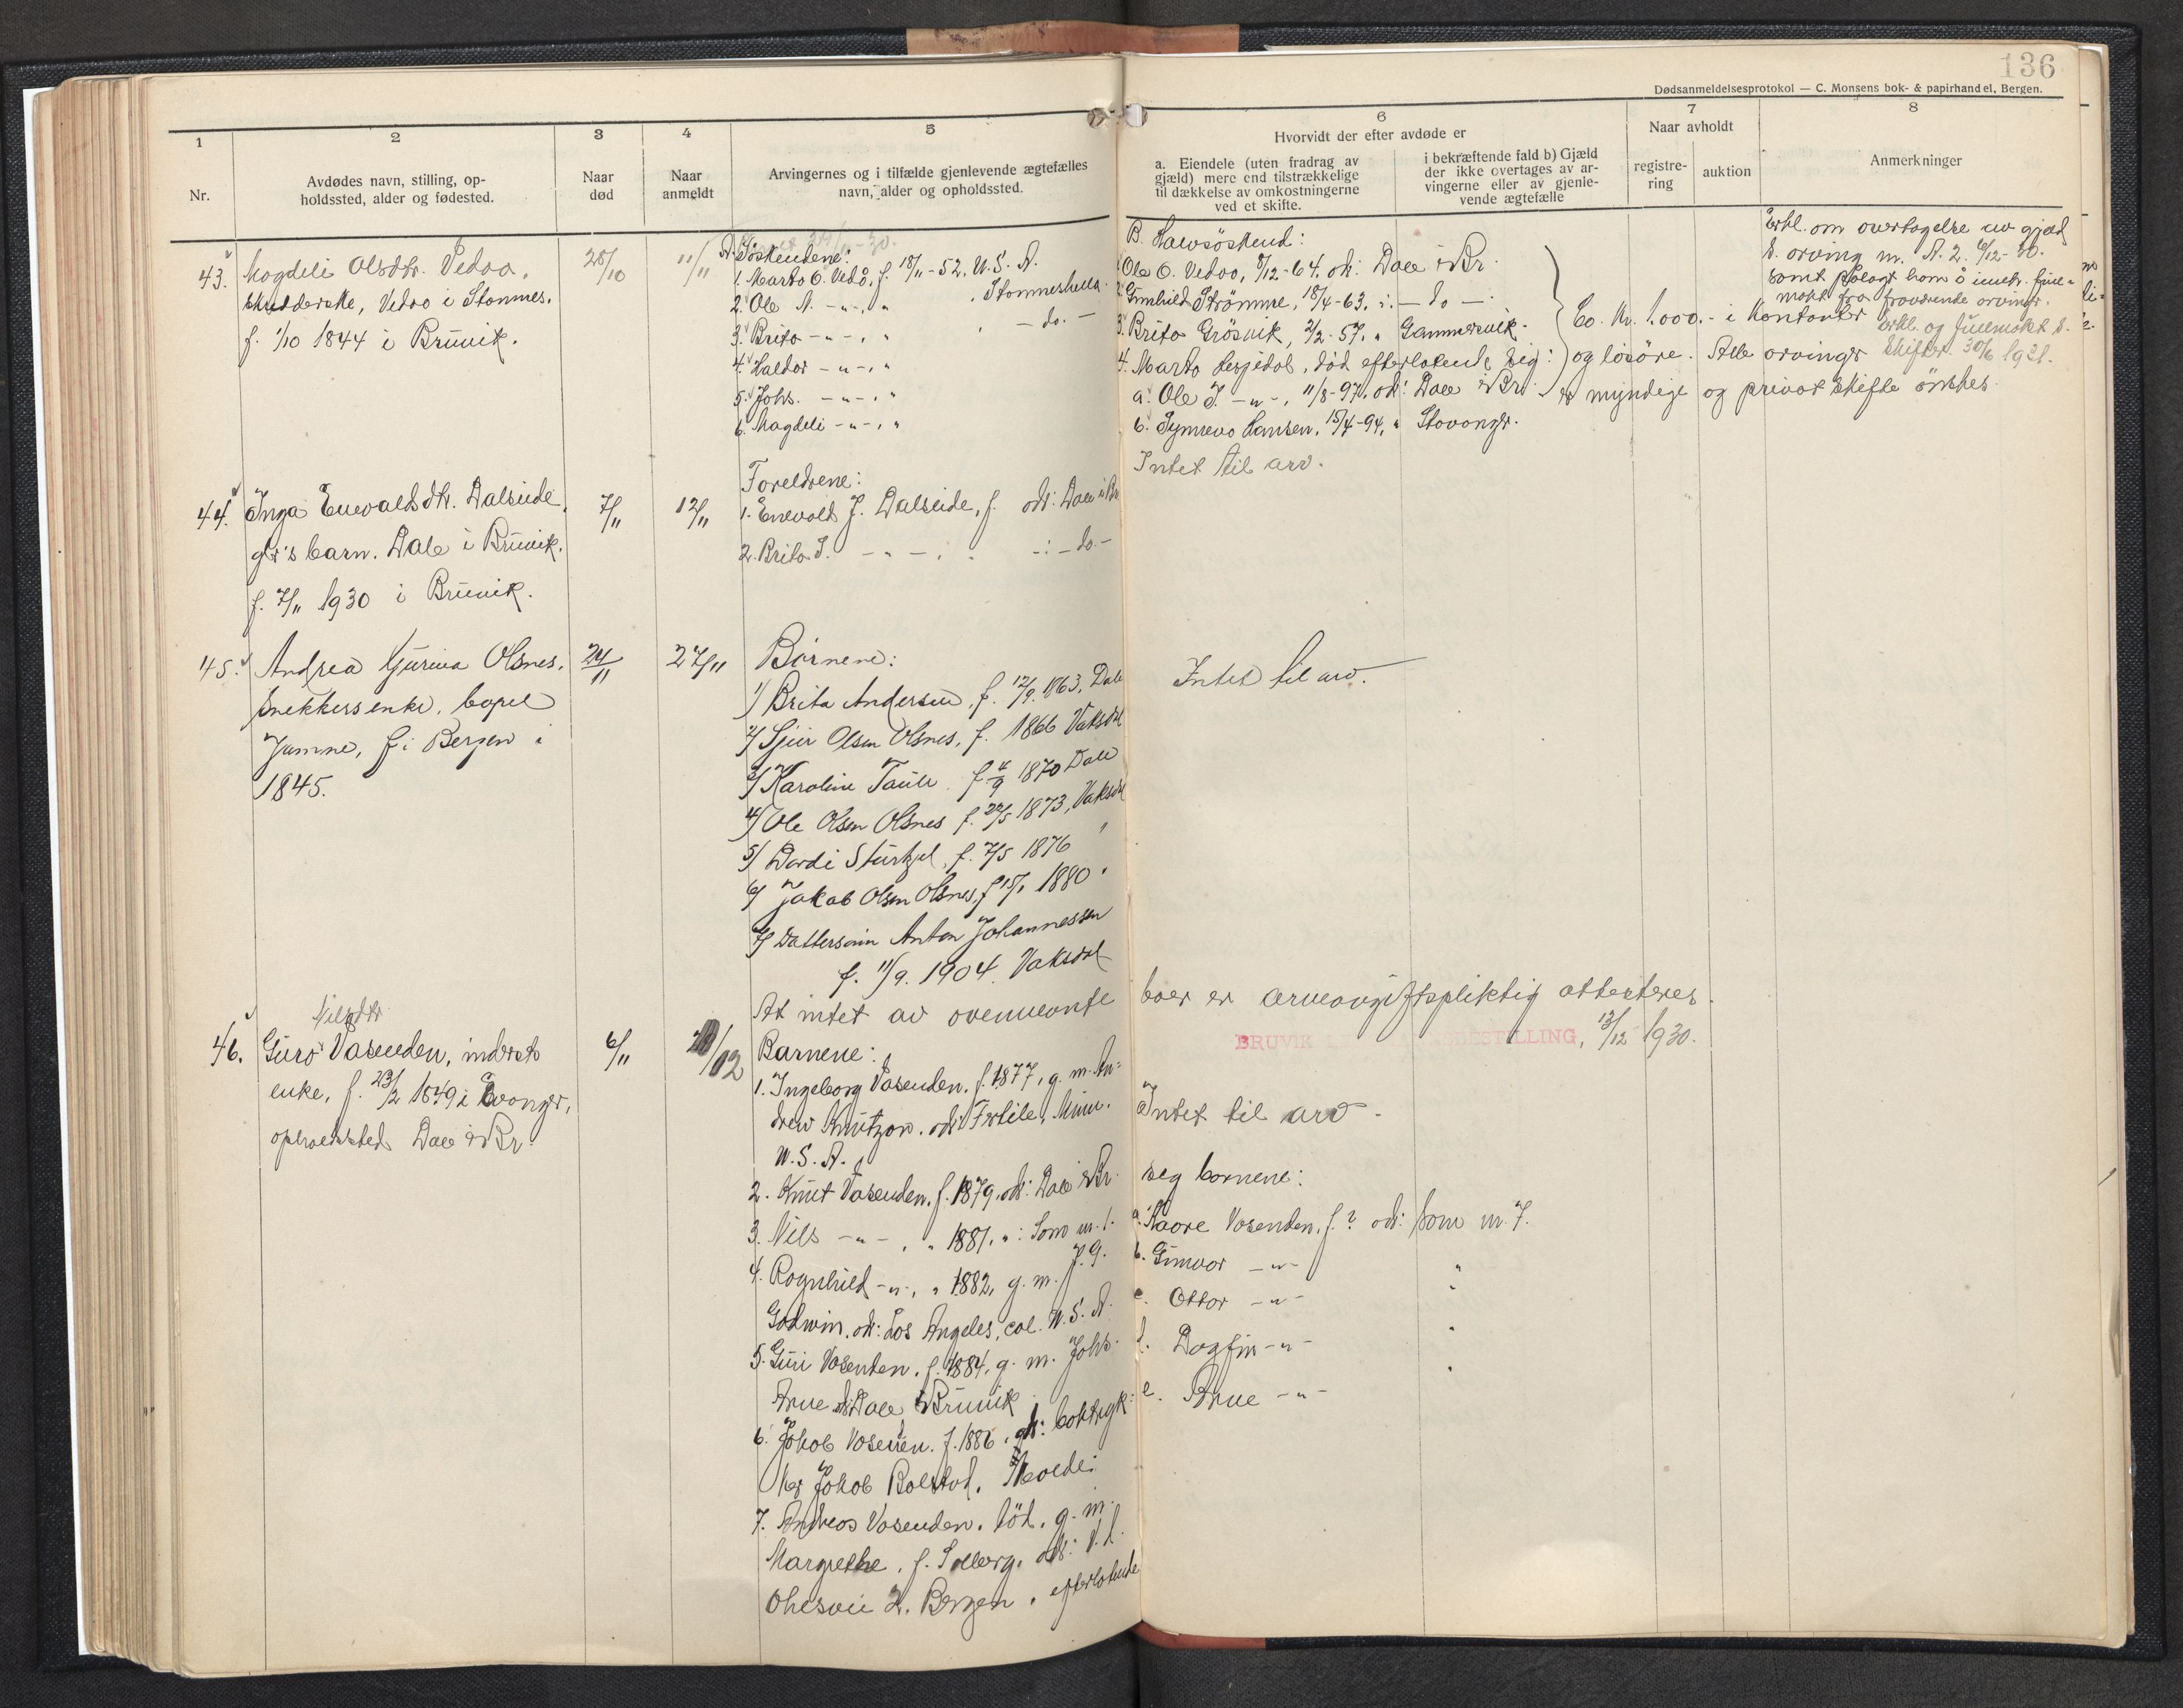 136
Dødsanmeldelsesprotokol — C. Monsens bok- & papirhandel, Bergen.
1
Nr.
2
Avdødes navn, stilling, op-
holdssted, alder og fødested.
3
Naar
død
4
Naar
anmeldt
5
Arvingernes og i tilfælde gjenlevende ægtefælles
navn, alder og opholdssted.
6
Hvorvidt der efter avdøde er
a. Eiendele (uten fradrag av
gjæld) mere end tilstrækkelige
til dækkelse av omkostningerne
ved et skifte.
i bekræftende fald b) Gjæld
der ikke overtages av ar-
vingerne eller av gjenle-
vende ægtefælle
7
Naar avholdt
registre-
ring
auktion
8
Anmerkninger
43. Magdeli Olsdtr. Vedaa,
Vedaa i Stammes.
f. 1/10 1844 i Bruvik.
28/10
11/11
A. Søskendene:
1. Marta O. Vedå, f. 18/11-52, U.S.A.
2. Ole A. -"-, " , Stammeshella
3. Brita -"-, " , -do.-
4. Haldor -"-, "
5. Johs. -"-, "
6. Magdeli -"-, "
B. Halvsøskend:
Ole O. Vedaa, 8/12-64, ds: Dale i Br.
2. Gunhild Strømme, 18/4-63, ": -do-
3. Brita Grøsvik, 2/2-57, " Gammersvik.
4. Marta Hesjedal, død efterlatende sig:
a. Ole J. -"-, 11/8-97, ds: Dale i Br.
b. Synneva Hansen, 15/4-94, " Stavanger.
Co. Kr. 1.000.- i kontanter
og løsøre. Alle arvinger
er myndige og privat skifte ønskes.
Erkl. om overtagelse av gjæld
f. arving nr. A. 2. 6/12-30.
samt pålagt ham å innh. full-
makt fra fraværende arvinger.
Erkl. og fullmakt f.
Skifter 30/6 1931.
44. Inga Enevaldsdtr. Dalseide,
gbr's barn. Dale i Bruvik.
f. 7/11 1930 i Bruvik.
7/11
12/11
Foreldrene:
1. Enevald J. Dalseide, f. ds: Dale i Br
2. Brita J. -"-, -:-do-
Intet til arv.
45. Andrea Gurina Olsnes,
snekkersenke, bopel
Jamne, f. i Bergen i
1845.
24/11
27/11
Børnene:
1/ Brita Andersen, f. 12/9. 1863, Dale
2/ Sjur Olsen Olsnes, f. 1866 Vaksdal
3/ Karoline Taule f. 4/9 1870 Dale
4/ Ole Olsen Olsnes f. 22/5 1873, Vaksdal
5/ Dordi Sturtzel, f. 7/5 1876 "
6/ Jakob Olsen Olsnes, f. 15/1 1880 "
7/ Dattersønn Anton Johannessen
f. 11/9. 1904. Vaksdal
Intet til arv.
At intet av ovennevnte boer er arveavgiftspliktig attesteres.
BRUVIK LENSMANNSBESTILLING, 13/12 1930.
46. Guro Nilsdtr Vasenden, inderst
enke, f. 23/2 1849 i Evanger,
opholdssted Dale i Br.
6/11
/12
Barnene:
1. Ingeborg Vasenden, f. 1877, g. m. An-
drew Knutzon, ds: Fertile, Minn.
U.S.A.
2. Knut Vasenden, f. 1879, ds: Dale i Br.
3. Nils -"-, " 1881, ": Som nr. 1.
4. Ragnhild -"-, " 1882, g. m. J. G.
Godwin, ds: Los Angeles, cal. U.S.A.
5. Guri Vasenden, f. 1884, g. m. Johs.
Arne ds: Dale i Bruvik
6. Jakob Vasenden. f. 1886, ds: boktryk-
ker Jakob Bolstad, Molde
7. Andreas Vasenden, död, g. m.
Margrethe, f. Solberg, ds: V. d.
Ohesvei 2. Bergen, efterlatende
Intet til arv.
seg barnene:
a. Kaare Vasenden, f. ? ds: som nr. 7.
b. Gunvor -"- "
c. Ottar -"- "
d. Dagfin -"- "
e. Arne -"- "